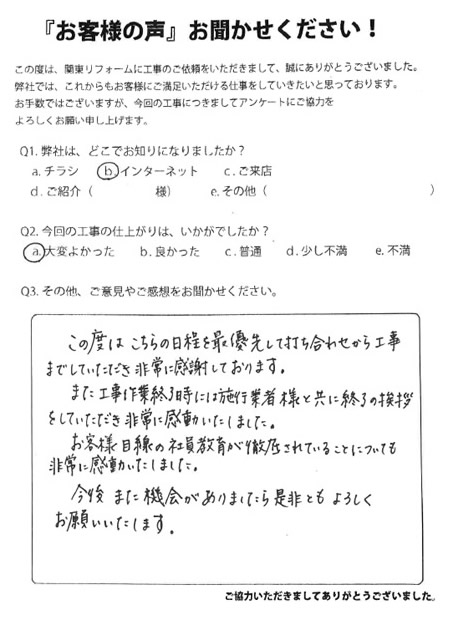 『お客様の声』お聞かせください！
この度は、関東リフォームに工事のご依頼をいただきまして、誠にありがとうございました。
弊社では、これからもお客様にご満足いただける仕事をしていきたいと思っております。
お手数ではございますが、今回の工事につきましてアンケートにご協力を
よろしくお願い申し上げます。
Q1. 弊社は、どこでお知りになりましたか？
a. チラシ b. インターネット c. ご来店
d. ご紹介（ 様） e. その他（ ）
Q2. 今回の工事の仕上がりは、いかがでしたか？
a. 大変よかった b. 良かった c. 普通 d. 少し不満 e. 不満
Q3. その他、ご意見やご感想をお聞かせください。
この度は こちらの日程を最優先して打ち合わせから工事
までしていただき 非常に感謝しております。
また 工事作業終了時には施行業者様と共に終了の挨拶
をしていただき 非常に感動いたしました。
お客様目線の社員教育が徹底されていることについても
非常に感動いたしました。
今後 また 機会がありましたら是非とも よろしく
お願いいたします。
ご協力いただきましてありがとうございました。